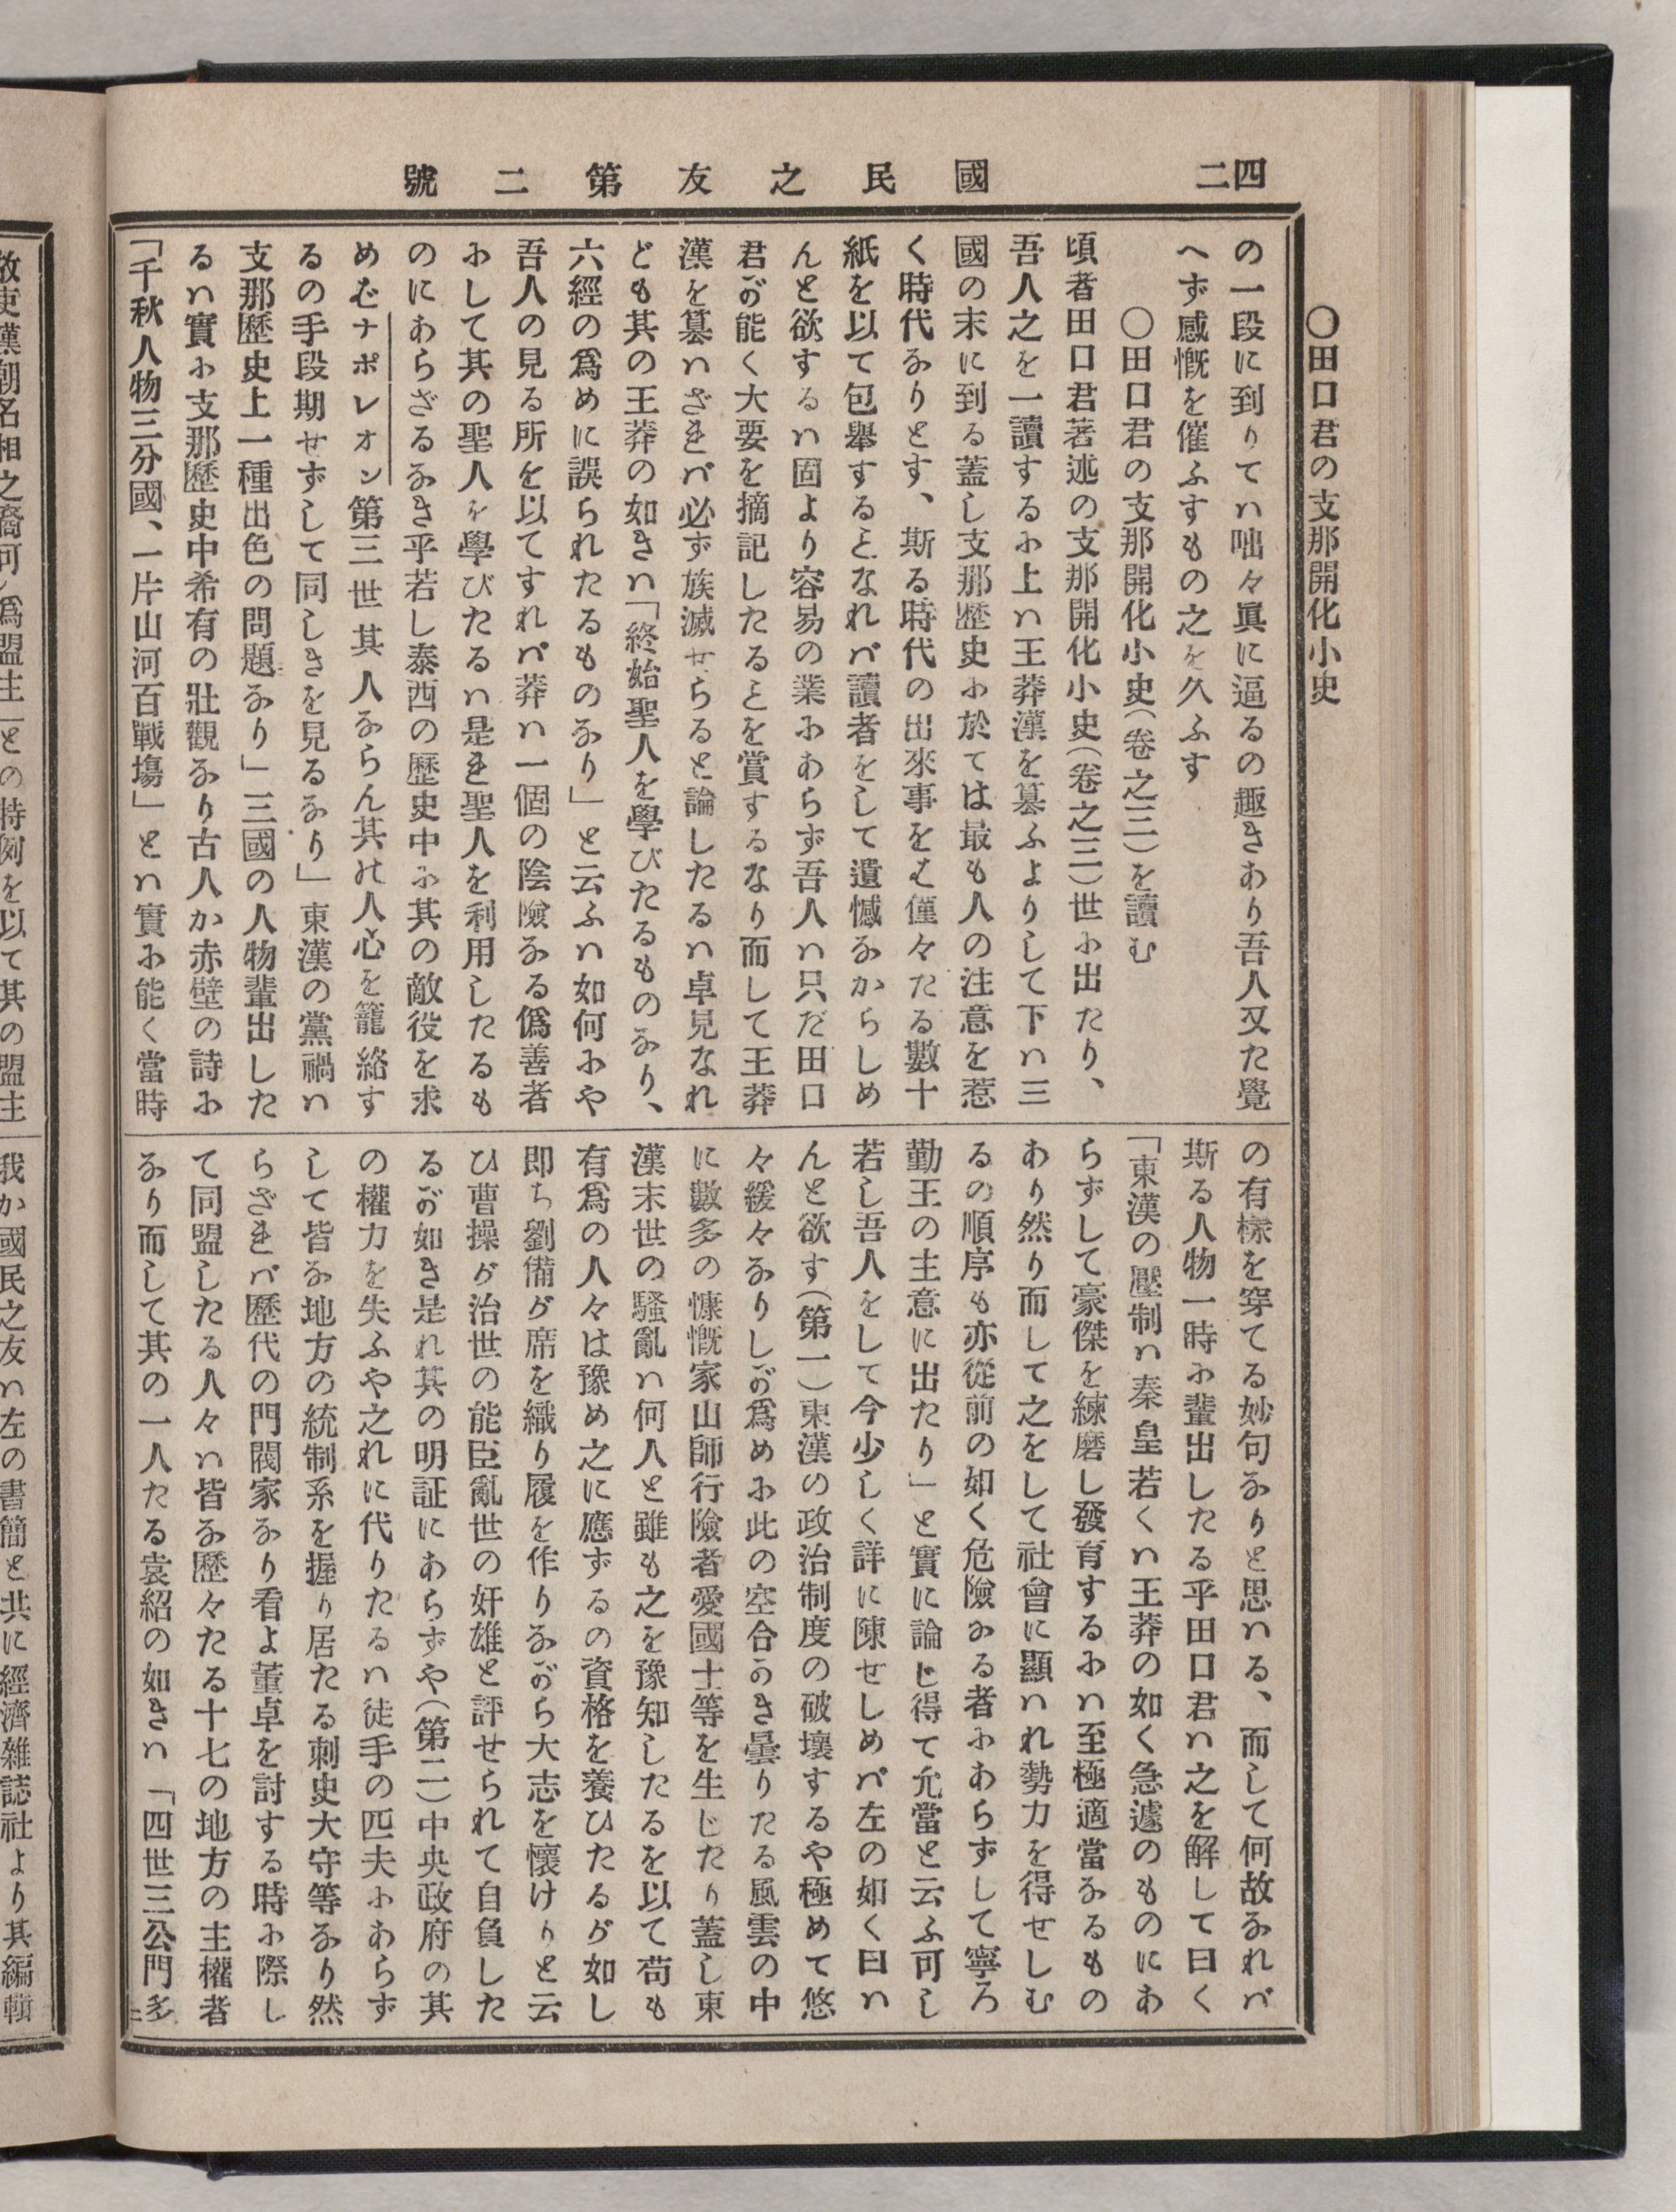 四二
國民之友第二號
〇田口君の支那開化小史
の一段に到りてハ咄々眞に逼るの趣きあり吾人又た覺
へず感慨を催ふすもの之を久ふす
〇田口君の支那開化小史(卷之三)を讀む
頃者田口君著述の支那開化小史(卷之三)世に出たり、
吾人之を一讀するに上ハ王莽漢を簒ふよりして下ハ三
國の末に到る蓋し支那歷史に於ては最も人の注意を惹
く時代なりとす、斯る時代の出來事をば僅々たる數十
紙を以て包舉することなれバ讀者をして遺憾なからしめ
んと欲するハ固より容易の業にあらず吾人ハ只だ田口
君が能く大要を摘記したることを賞するなり而して王莽
漢を簒ハざれバ必ず族滅せらると論したるハ卓見なれ
ども其の王莽の如きハ「終始聖人を學びたるものなり、
六經の爲めに誤られたるものなり」と云ふハ如何にや
吾人の見る所を以てすれバ莽ハ一個の陰險なる僞善者
にして其の聖人を學びたるハ是れ聖人を利用したるも
のにあらざるなき乎若し泰西の歷史中に其の敵役を求
めばナポレオン第三世其人ならん其れ人心を籠絡す
るの手段期せずして同しきを見るなり」東漢の黨禍ハ
支那歷史上一種出色の問題なり」三國の人物輩出した
るハ實に支那歷史中希有の壯觀なり古人か赤壁の詩に
「千秋人物三分國、一片山河百戰塲」とハ實に能く當時
の有樣を穿てる妙句なりと思ハる、而して何故なれバ
斯る人物一時に輩出したる乎田口君ハ之を解して曰く
「東漢の壓制ハ秦皇若くハ王莽の如く急遽のものにあ
らずして豪傑を練磨し發育するにハ至極適當なるもの
あり然り而して之をして社會に顯ハれ勢力を得せしむ
るの順序も亦從前の如く危險なる者にあらずして寧ろ
勤王の主意に出たり」と實に論じ得て允當と云ふ可し
若し吾人をして今少しく詳に陳せしめバ左の如く曰ハ
んと欲す(第一)東漢の政治制度の破壞するや極めて悠
々緩々なりしが爲めに此の空合のき曇りたる風雲の中
に數多の慷慨家山師行險者愛國士等を生じたり蓋し東
漢末世の騷亂ハ何人と雖も之を豫知したるを以て苟も
有爲の人々は豫め之に應ずるの資格を養ひたるが如し
即ち劉備が席を織り履を作りながら大志を懷けりと云
ひ曹操が治世の能臣亂世の奸雄と評せられて自負した
るが如き是れ其の明証にあらずや(第二)中央政府の其
の權力を失ふや之れに代りたるハ徒手の匹夫にあらず
して皆な地方の統制系を握り居たる刺史大守等なり然
らざれバ歷代の門閥家なり看よ董卓を討する時に際し
て同盟したる人々ハ皆な歷々たる十七の地方の主權者
なり而して其の一人たる袁紹の如きハ「四世三公門多
我か國民之友ハ左の書簡と共に經濟雜誌社より其編輯